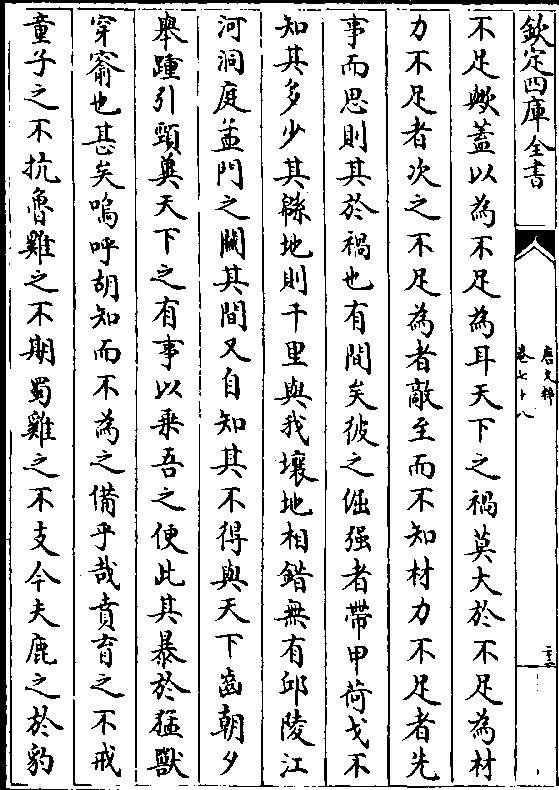 欽定四庫全書
唐文粹
卷七十八
不足歟蓋以為不足為耳天下之禍莫大於不足為材
力不足者次之不足為者敵至而不知材力不足者先
事而思則其於禍也有間矣彼之倔强者帶甲荷戈不
知其多少其緜地則千里與我壤地相錯無有邱陵江
河洞庭孟門之關其間又自知其不得與天下齒朝夕
舉踵引頸冀天下之有事以乗吾之便此其暴於猛獸
穿窬也甚矣嗚呼胡知而不為之備乎哉賁育之不戒
童子之不抗魯雞之不期蜀雞之不支今夫鹿之於豹